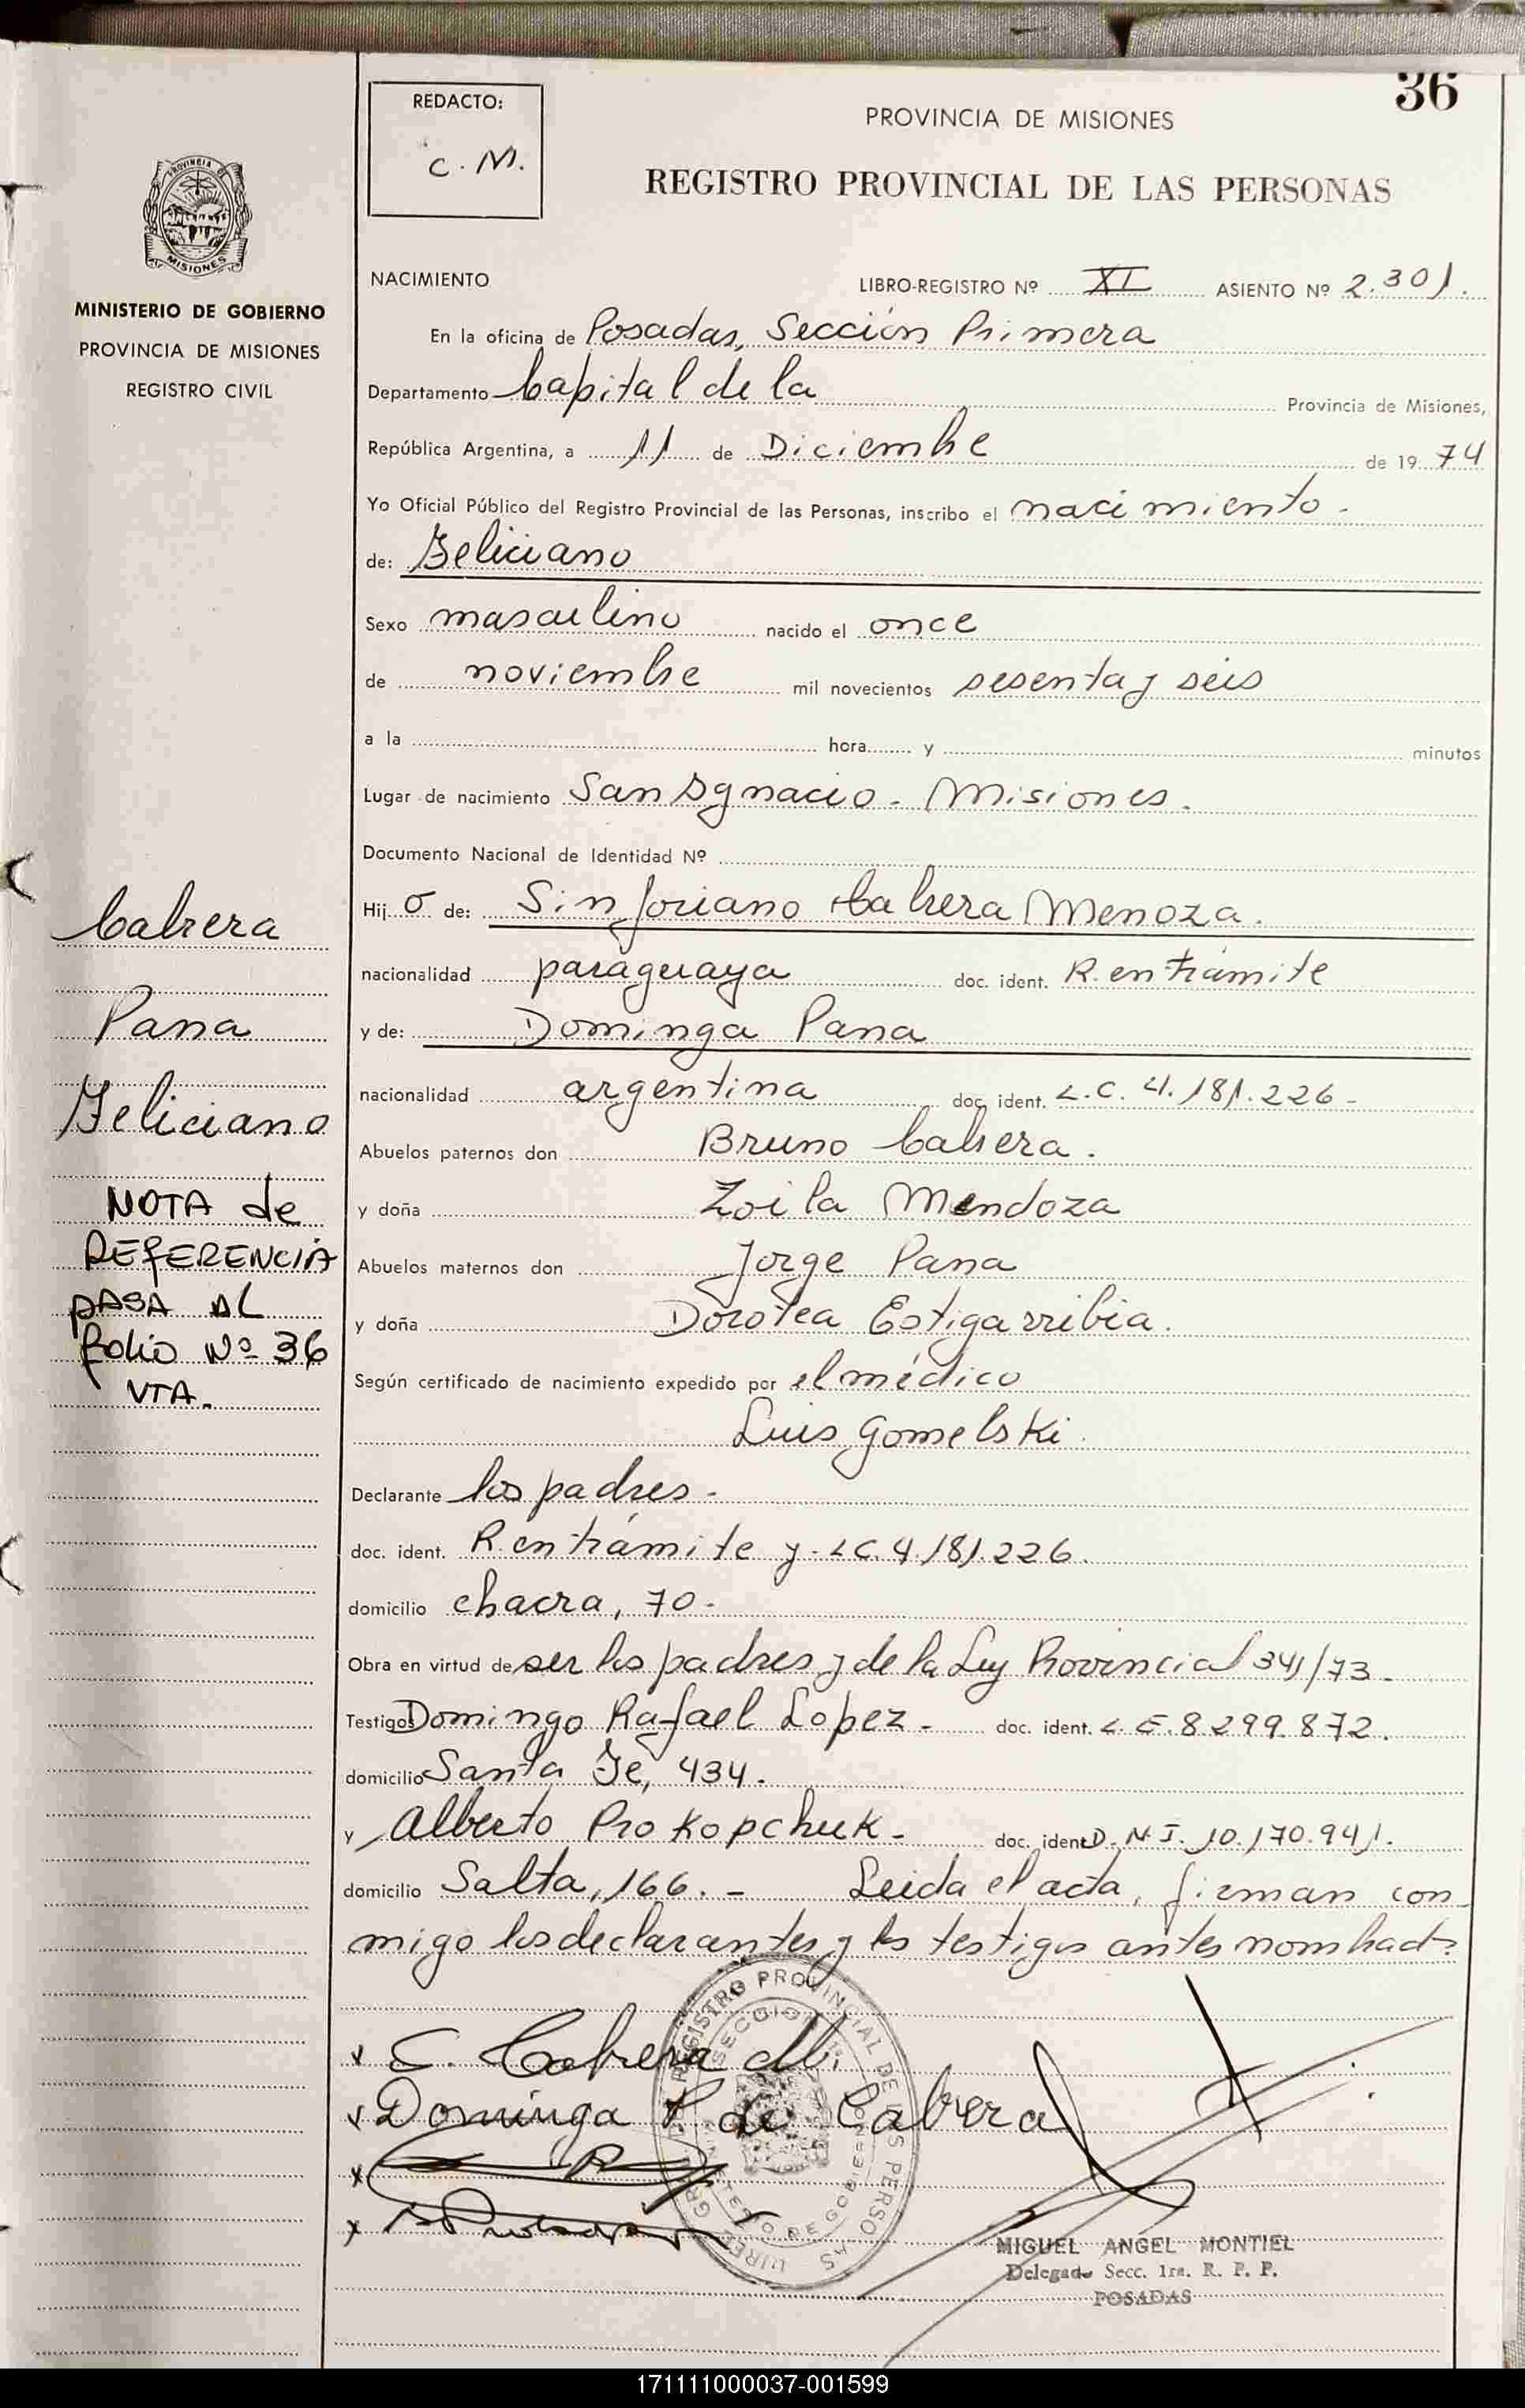 36
REDACTO:
C. M.
PROVINCIA DE MISIONES
REGISTRO PROVINCIAL DE LAS PERSONAS
PROVINCIA DE
MISIONES
MINISTERIO DE GOBIERNO
PROVINCIA DE MISIONES
REGISTRO CIVIL
NACIMIENTO
LIBRO-REGISTRO Nº XI ASIENTO Nº 2.301.
En la oficina de Posadas, Sección Primera
Departamento Capital de la Provincia de Misiones,
República Argentina, a 11 de Diciembre de 1974
Yo Oficial Público del Registro Provincial de las Personas, inscribo el nacimiento -
de: Feliciano
Sexo masculino nacido el once
de noviembre mil novecientos sesenta y seis
a la hora y minutos
Lugar de nacimiento San Ignacio - Misiones.
Documento Nacional de Identidad Nº
Hijo de: Sinforiano Cabrera Menoza.
nacionalidad paraguaya doc. ident. R. en trámite
y de: Dominga Pana
nacionalidad argentina doc. ident. L.C. 4.181.226 -
Abuelos paternos don Bruno Cabrera.
y doña Zoila Mendoza
Abuelos maternos don Jorge Pana
y doña Dorotea Estigarribia.
Según certificado de nacimiento expedido por el médico
Luis Gomelski.
Declarante los padres -
doc. ident. R. en trámite y - LC. 4.181.226.
domicilio chacra, 70 -
Obra en virtud de ser los padres y de la Ley Provincial 341/73 -
Testigos Domingo Rafael Lopez - doc. ident. L.E. 8.299.872.
domicilio Santa Fe, 434.
y Alberto Prokopchuk - doc. ident D.N.I. 10.170.941.
domicilio Salta, 166. - Leida el acta, firman con
migo los declarantes y los testigos antes nombrados
Cabrera
Pana
Feliciano
NOTA de
REFERENCIA
PASA AL
folio Nº 36
VTA.
S. Cabrera M.
Dominga P de Cabrera
REGISTRO PROVINCIAL DE LAS PERSONAS
MIGUEL ANGEL MONTIEL
Delegado Secc. 1ra. R. P. P.
POSADAS
171111000037-001599